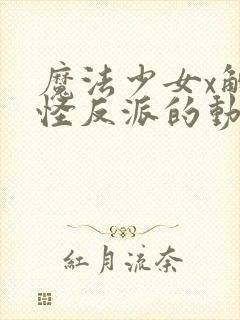 魔法少女x
怪反派的動
紅月流奈